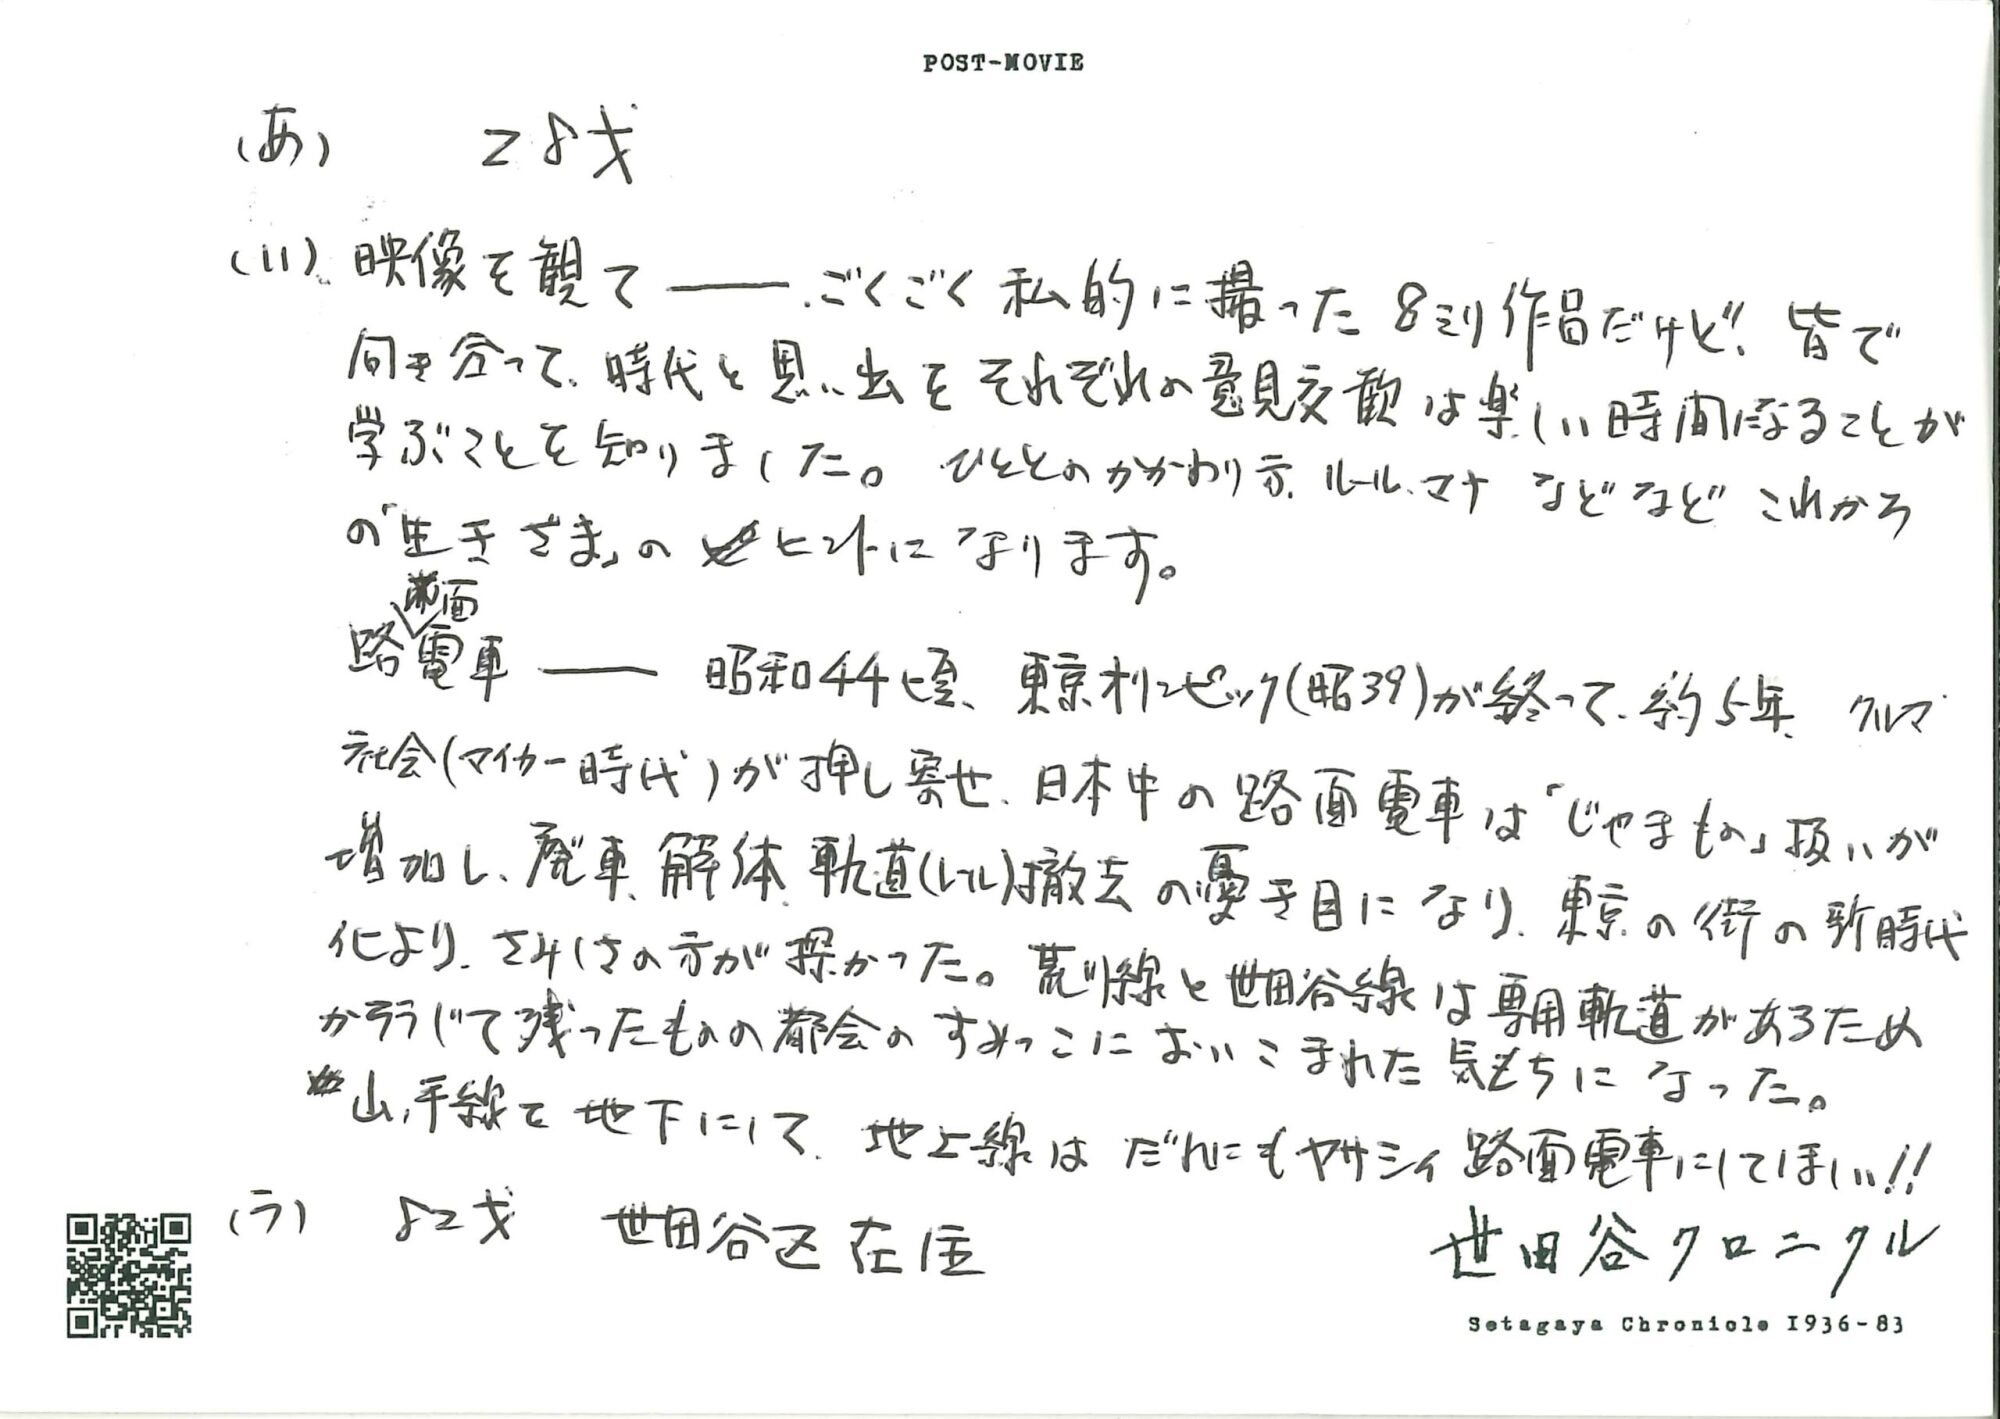 POST-MOVIE
(あ) 28才
(い) 映像を観て―――.ごくごく私的に撮った8ミリ作品だけど、皆で
向き合って、時代と思い出をそれぞれの意見交歓は楽しい時間になることが
学ぶことを知りました。ひととのかかわり方、ルール、マナ などなど これから
の「生きざま」の ヒントになります。
路面電車――― 昭和44頃、東京オリンピック(昭39)が終って、約5年、クルマ
社会(マイカー時代)が押し寄せ、日本中の路面電車は「じゃまもの」扱いが
増加し、廃車、解体、軌道(レール)撤去の憂き目になり、東京の街の新時代
化より、さみしさの方が深かった。荒川線と世田谷線は専用軌道があるため
かろうじて残ったものの都会のすみっこにおいこまれた気もちになった。
山手線を地下にして、地上線はだれにもヤサシイ路面電車にしてほしい!!
(う) 82才 世田谷区在住
世田谷クロニクル
Setagaya Chronicle 1936-83